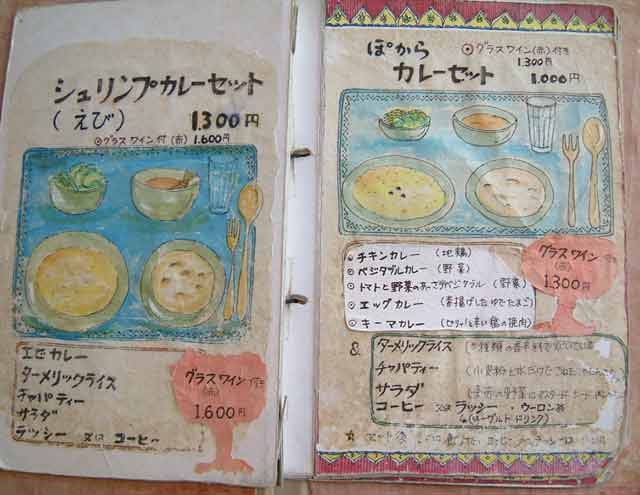 シュリンプカレーセット
(えび) 1.300円
◎グラスワイン付(赤) 1.600円
エビカレー
ターメリックライス
チャパティー
サラダ
ラッシー 又は コーヒー
グラスワイン付き
(赤)
1.600円
ぽから
カレーセット
◎グラスワイン(赤)付き
1.300円
1.000円
◎チキンカレー (地鶏)
◎ベジタブルカレー (野菜)
◎トマトと野菜の (野菜)
◎エッグカレー (素揚げしたゆでたまご)
◎キーマカレー
グラスワイン
(赤)
1.300円
&
ターメリックライス
チャパティー
サラダ
コーヒー 又は ラッシー ・ウーロン茶
(ヨーグルトドリンク)